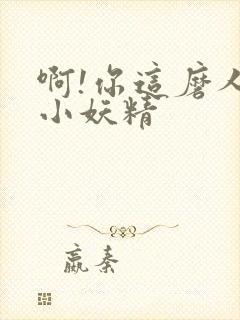 啊!你這磨人
小妖精
嬴秦